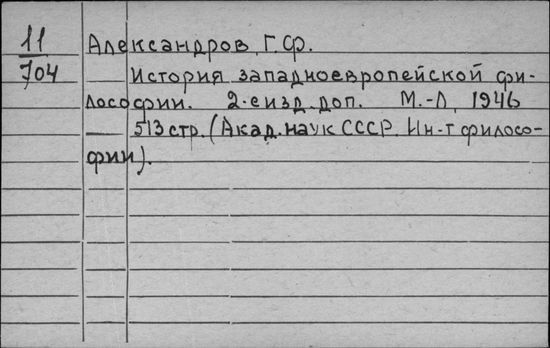 11 Александров, Г.Ф.
704 История западноевропейской фи-
лософии. 2-е изд. доп. М.-Л, 1946
513 стр. (Акад. наук СССР. Ин-т филосо-
фии).